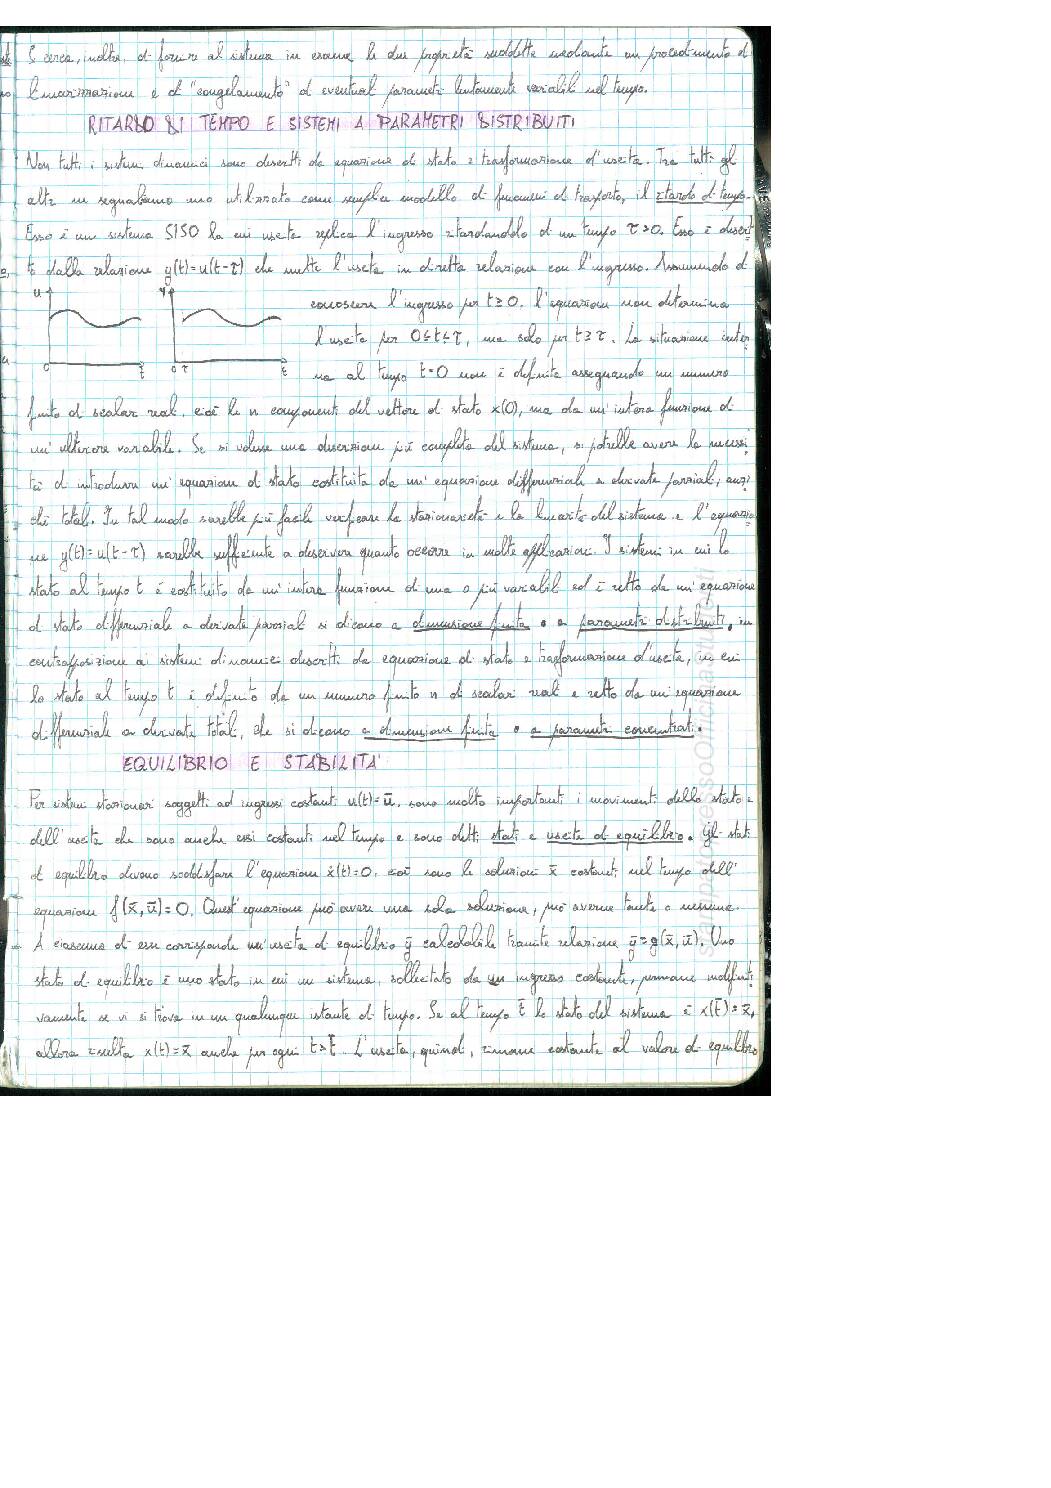 Si cerca, inoltre, di fornire al sistema in esame le due proprietà suddette mediante un procedimento di
linearizzazione e di "congelamento" di eventuali parametri lentamente variabili nel tempo.
RITARDO DI TEMPO E SISTEMI A PARAMETRI DISTRIBUITI
Non tutti i sistemi dinamici sono descritti da equazione di stato e trasformazione d'uscita. Tra tutti gli
altri ne segnaliamo uno utilizzato come semplice modello di fenomeni di trasporto, il ritardo di tempo.
Esso è un sistema SISO la cui uscita replica l'ingresso ritardandolo di un tempo τ>0. Esso è descrit
to dalla relazione y(t)=u(t-τ) che mette l'uscita in diretta relazione con l'ingresso. Assumendo di
u y
conoscere l'ingresso per t≥0, l'equazione non determina
l'uscita per 0≤t≤τ, ma solo per t≥τ. La situazione inter
0 t 0 τ t
na al tempo t=0 non è definita assegnando un numero
finito di scalari reali, cioè le n componenti del vettore di stato x(0), ma da un'intera funzione di
un'ulteriore variabile. Se si volesse una descrizione più completa del sistema, si potrebbe avere la necessi
tà di introdurre un'equazione di stato costituita da un'equazione differenziale a derivate parziali, anzi
ché totali. In tal modo sarebbe più facile verificare la stazionarietà e la linearità del sistema e l'equazio
ne y(t)=u(t-τ) sarebbe sufficiente a descrivere quanto occorre in molte applicazioni. I sistemi in cui lo
stato al tempo t è costituito da un'intera funzione di una o più variabili ed è retto da un'equazione
di stato differenziale a derivate parziali si dicono a dimensione finita o a parametri distribuiti, in
contrapposizione ai sistemi dinamici descritti da equazione di stato e trasformazione d'uscita, in cui
lo stato al tempo t è definito da un numero finito n di scalari reali e retto da un'equazione
differenziale a derivate totali, che si dicono a dimensione finita o a parametri concentrati.
EQUILIBRIO E STABILITA'
Per sistemi stazionari soggetti ad ingressi costanti u(t)=ū, sono molto importanti i movimenti dello stato e
dell'uscita che sono anche essi costanti nel tempo e sono detti stati e uscite di equilibrio. Gli stati
di equilibrio devono soddisfare l'equazione ẋ(t)=0, cioè sono le soluzioni x̄ costanti nel tempo dell'
equazione f(x̄,ū)=0. Quest'equazione può avere una sola soluzione, può averne tante o nessuna.
A ciascuna di esse corrisponde un'uscita di equilibrio ȳ calcolabile tramite relazione ȳ=g(x̄,ū). Uno
stato di equilibrio è uno stato in cui un sistema, sollecitato da un ingresso costante, permane indefiniti
vamente se vi si trova in un qualunque istante di tempo. Se al tempo t̄ lo stato del sistema è x(t̄)=x̄,
allora risulta x(t)=x̄ anche per ogni t>t̄. L'uscita, quindi, rimane costante al valore di equilibrio